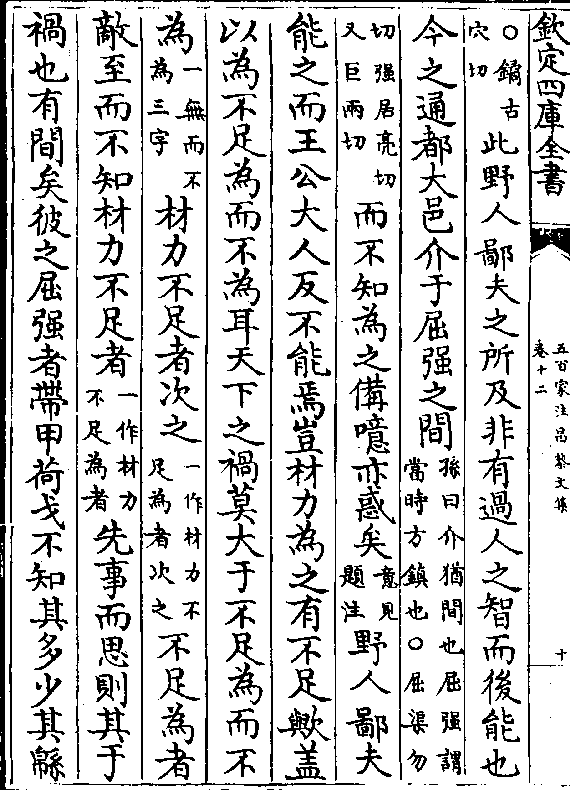 欽定四庫全書
五百家注昌黎文集
卷十二
十
○鐍古穴切此野人鄙夫之所及非有過人之智而後能也
今之通都大邑介于屈强之間孫曰介猶間也屈强謂當時方鎮也○屈渠勿
切强居亮切又巨兩切而不知為之備噫亦惑矣意見題注野人鄙夫
能之而王公大人反不能焉豈材力為之有不足歟盖
以為不足為而不為耳天下之禍莫大于不足為而不
為一無而不為三字材力不足者次之一作材力不足為者次之不足為者
敵至而不知材力不足者一作材力不足為者先事而思則其于
禍也有間矣彼之屈强者帶甲荷戈不知其多少其緜